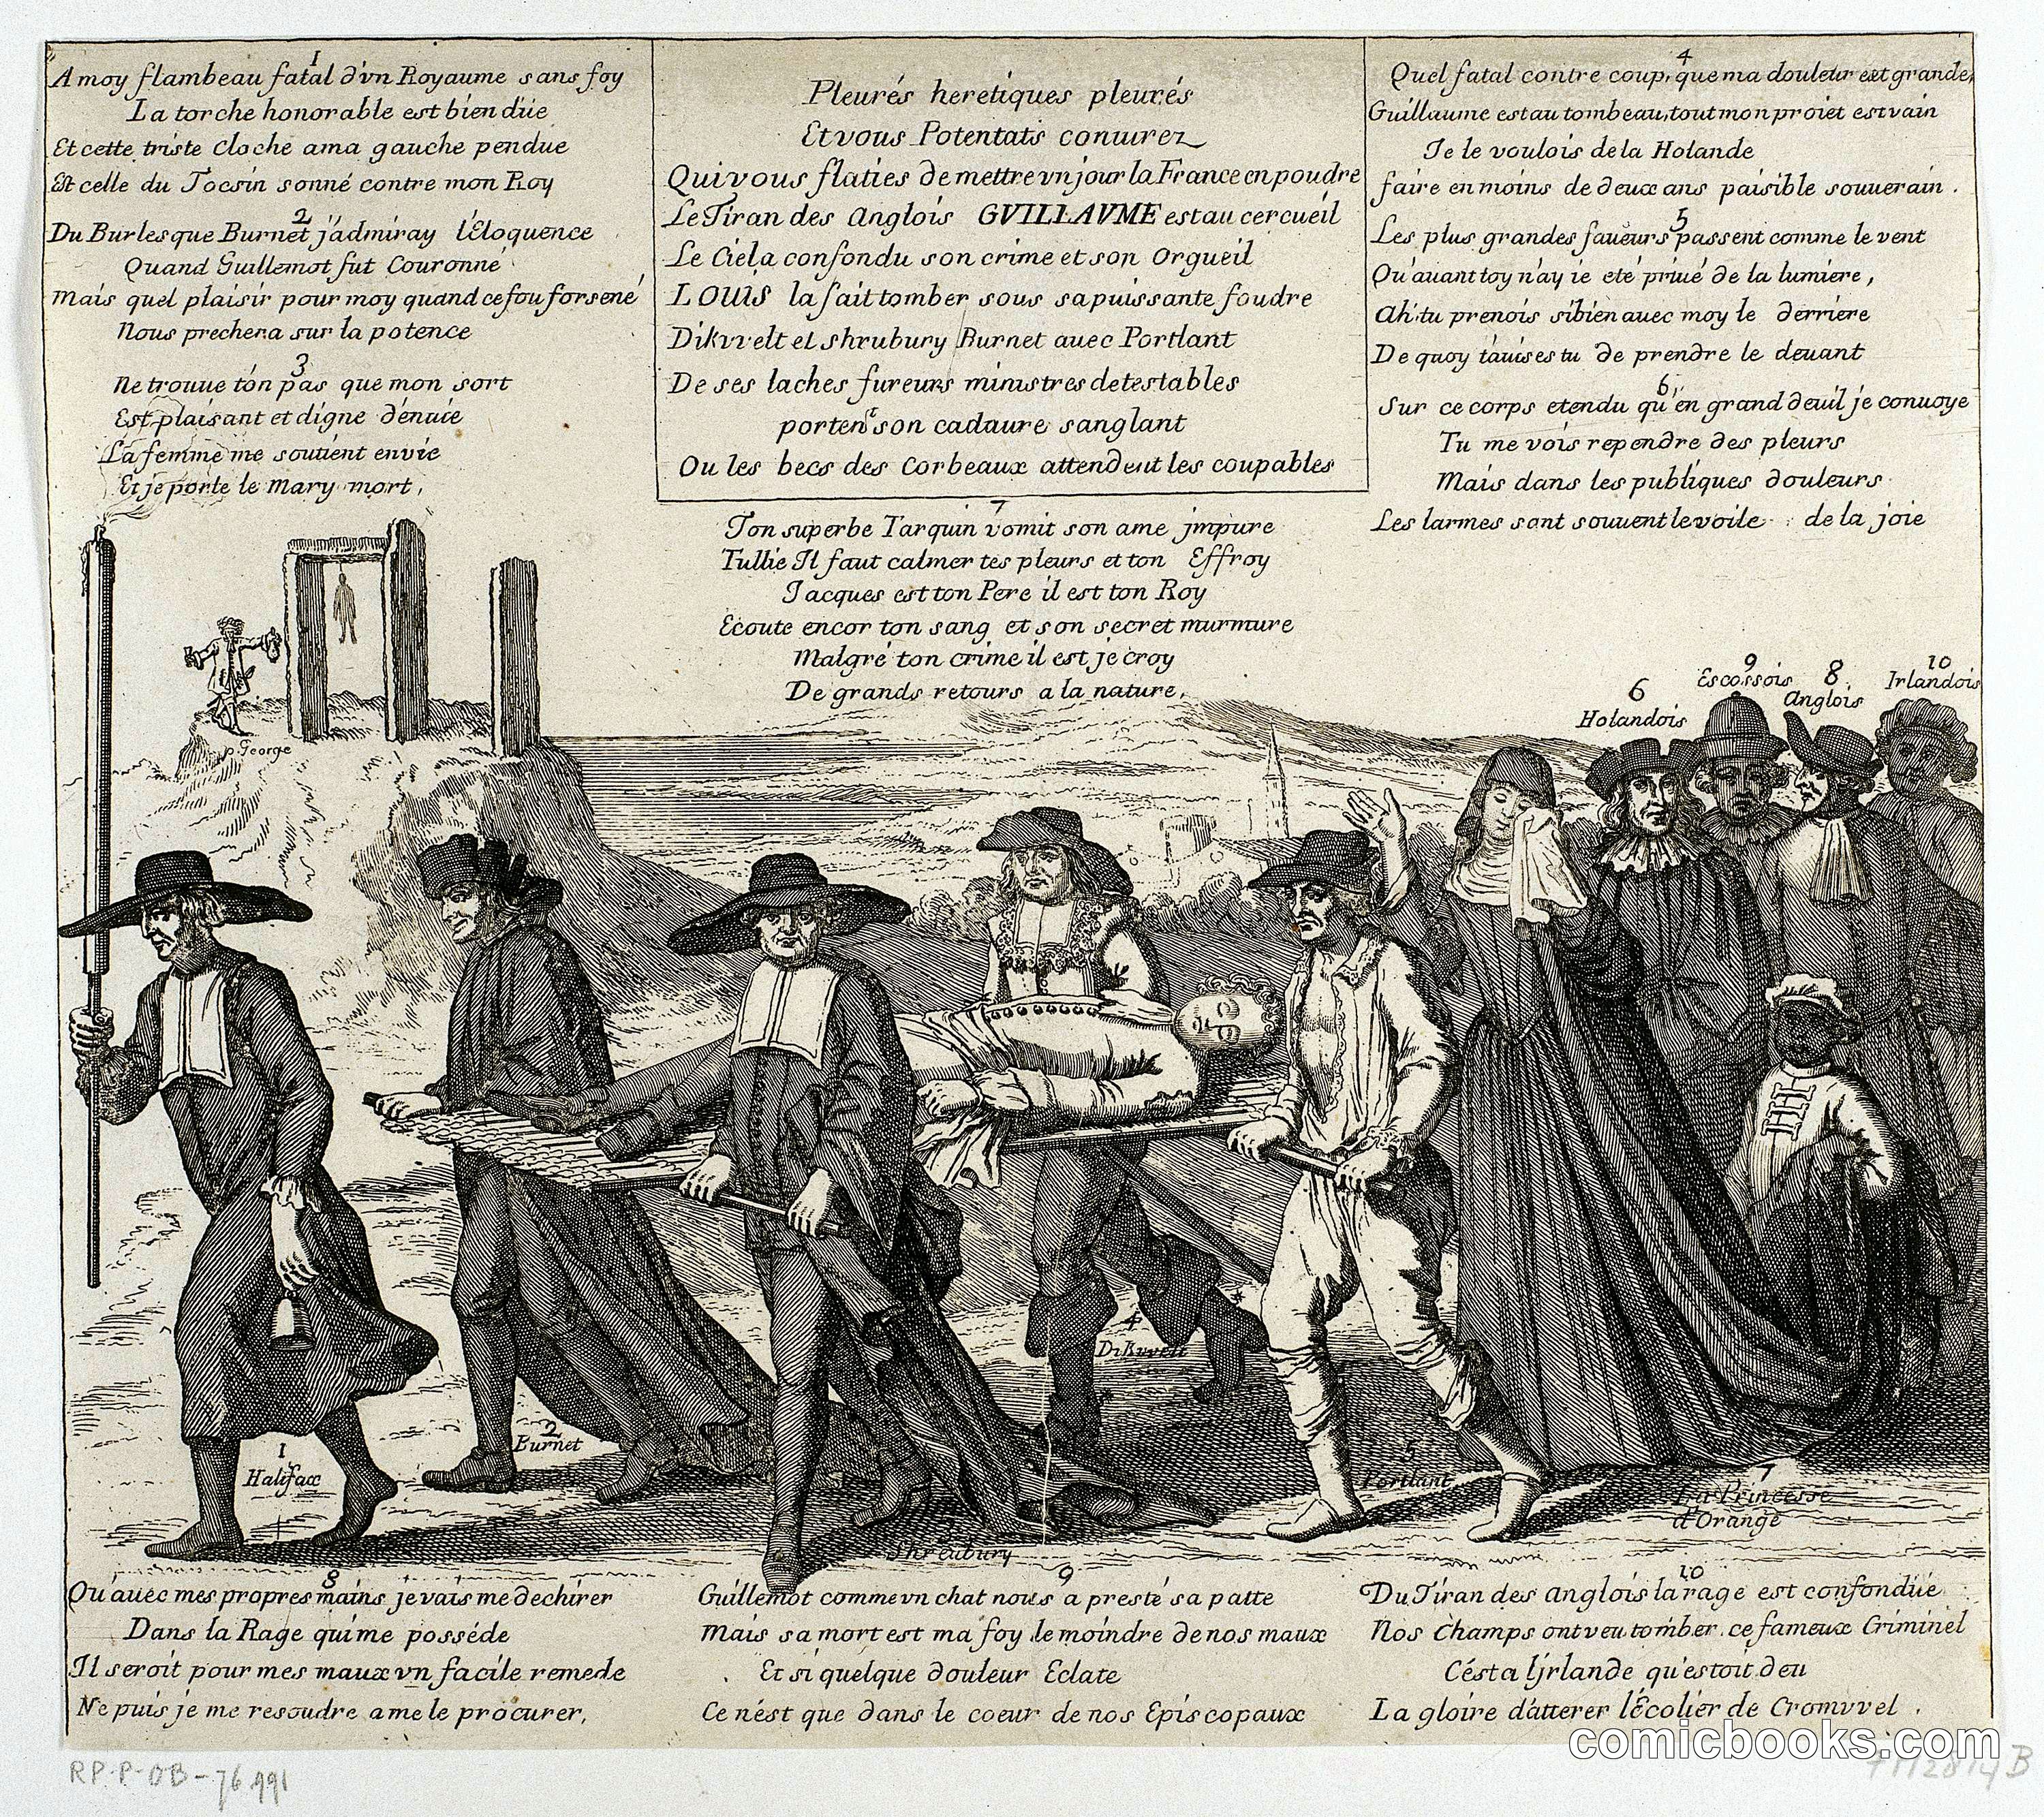 1
A moy flambeau fatal d'vn Royaume sans foy
La torche honorable est bien düe
Et cette triste Cloche a ma gauche pendue
Est celle du Tocsin sonné contre mon Roy
2
Du Burlesque Burnet j'admiray l'Eloquence
Quand Guillemot fut Couronné
Mais quel plaisir pour moy quand ce fou forsené
Nous prechera sur la potence
3
Ne trouue t'on pas que mon sort
Est plaisant et digne d'enuie
La femme me soutient envie
Et je porte le Mary mort,
Pleurés heretiques pleurés
Et vous Potentats coniurez
Qui vous flaties de mettre vn jour la France en poudre
Le Tiran des Anglois GVILLAVME est au cercueil
Le Ciel a confondu son crime et son Orgueil
LOUIS la fait tomber sous sa puissante foudre
Dikvvelt et shrubury Burnet avec Portlant
De ses laches fureurs ministres detestables
portent son cadaure sanglant
Ou les becs des Corbeaux attendent les coupables
4
Quel fatal contre coup, que ma douleur est grande,
Guillaume est au tombeau, tout mon proiet est vain
Je le voulois de la Holande
faire en moins de deux ans paisible souuerain.
5
Les plus grandes faueurs passent comme le vent
Qu'auant toy n'ay ie eté priué de la lumiere,
Ah! tu prenois si bien auec moy le derriere
De quoy t'auises tu de prendre le deuant
6
Sur ce corps etendu qu'en grand deuil je conuoye
Tu me vois rependre des pleurs
Mais dans les publiques douleurs
Les larmes sont souuent le voile de la joie
7
Ton superbe Tarquin vomit son ame jmpure
Tullie Il faut calmer tes pleurs et ton Effroy
Jacques est ton Pere il est ton Roy
Ecoute encor ton sang et son secret murmure
Malgré ton crime il est je croy
De grands retours a la nature,
p. George
6
Holandois
9
Escossois
8
Anglois
10
Irlandois
4
Dikvvelt
2
Burnet
1
Halifax
5
Portlant
7
La Princesse
d'Orange
Shreubury
8
Qu'auec mes propres mains je vais me dechirer
Dans la Rage qui me posséde
Il seroit pour mes maux vn facile remede
Ne puis je me resoudre a me le procurer,
9
Guillemot comme vn chat nous a presté sa patte
Mais sa mort est ma foy le moindre de nos maux
Et si quelque douleur Eclate
Ce n'ést que dans le coeur de nos Episcopaux
10
Du Tiran des Anglois la rage est confondüe
Nos Champs ont veu tomber ce fameux Criminel
C'ést a l'jrlande qu'estoit deu
La gloire d'atterer l'Ecolier de Cromvvel.
comicbooks.com
RP-P-OB-76.991